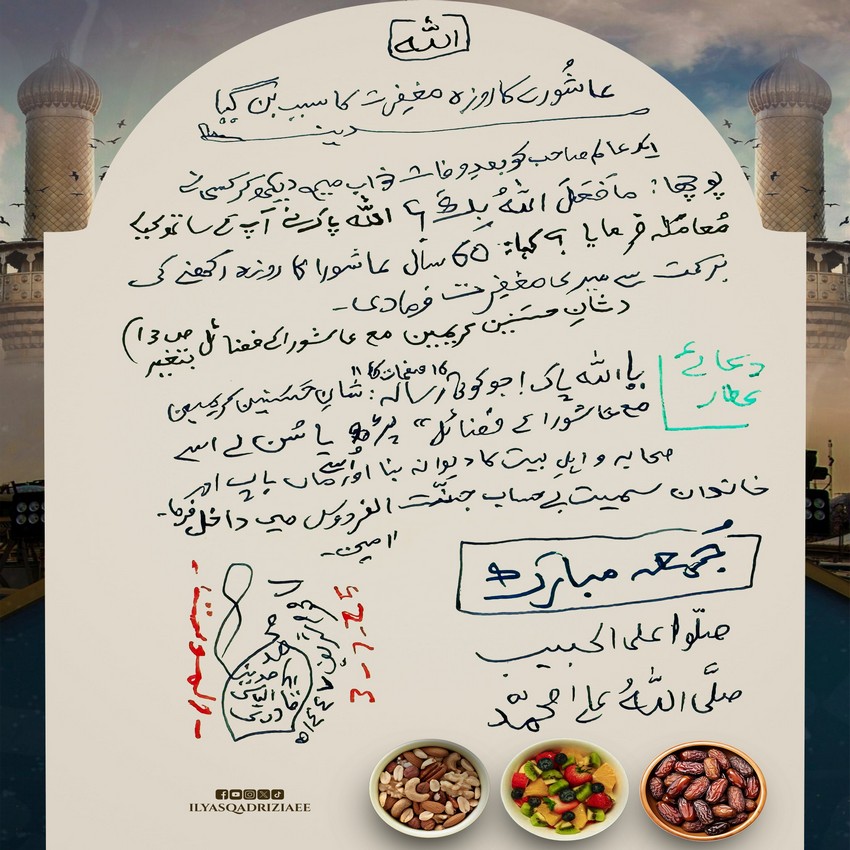 الله
عاشُورے کا روزہ مغفِرت کا سبب بن گیا
مدینہ
ایک عالم صاحب کو بعدِ وفات خواب میں دیکھ کر کسی نے
پوچھا: مَا فَعَلَ اللهُ بِكَ؟ الله پاک نے آپ کے ساتھ کیا
مُعامَلہ فرمایا؟ کہا: 60 سال عاشورا کا روزہ رکھنے کی
برکت سے میری مغفِرت فرما دی۔
(شانِ حسنین کریمین مع عاشورا کے فضائل ص 13 بتغیر)
دعائے عطار
یا الله پاک! جو کوئی 16 صفحات کا رسالہ: "شانِ حَسَنین کریمین
مع عاشورا کے فضائل" پڑھ یا سُن لے اسے
صحابہ و اہلِ بیت کا دیوانہ بنا اور اُسے ماں باپ اور
خاندان سمیت بے حساب جنّت الفردوس میں داخل فرما۔
امین۔
جُمعہ مبارک
صلّوا علی الحبیب
صلَّی اللهُ علٰی محمّد
محمد الیاس قادری
3-7-25
ILYASQADRIZIAEE